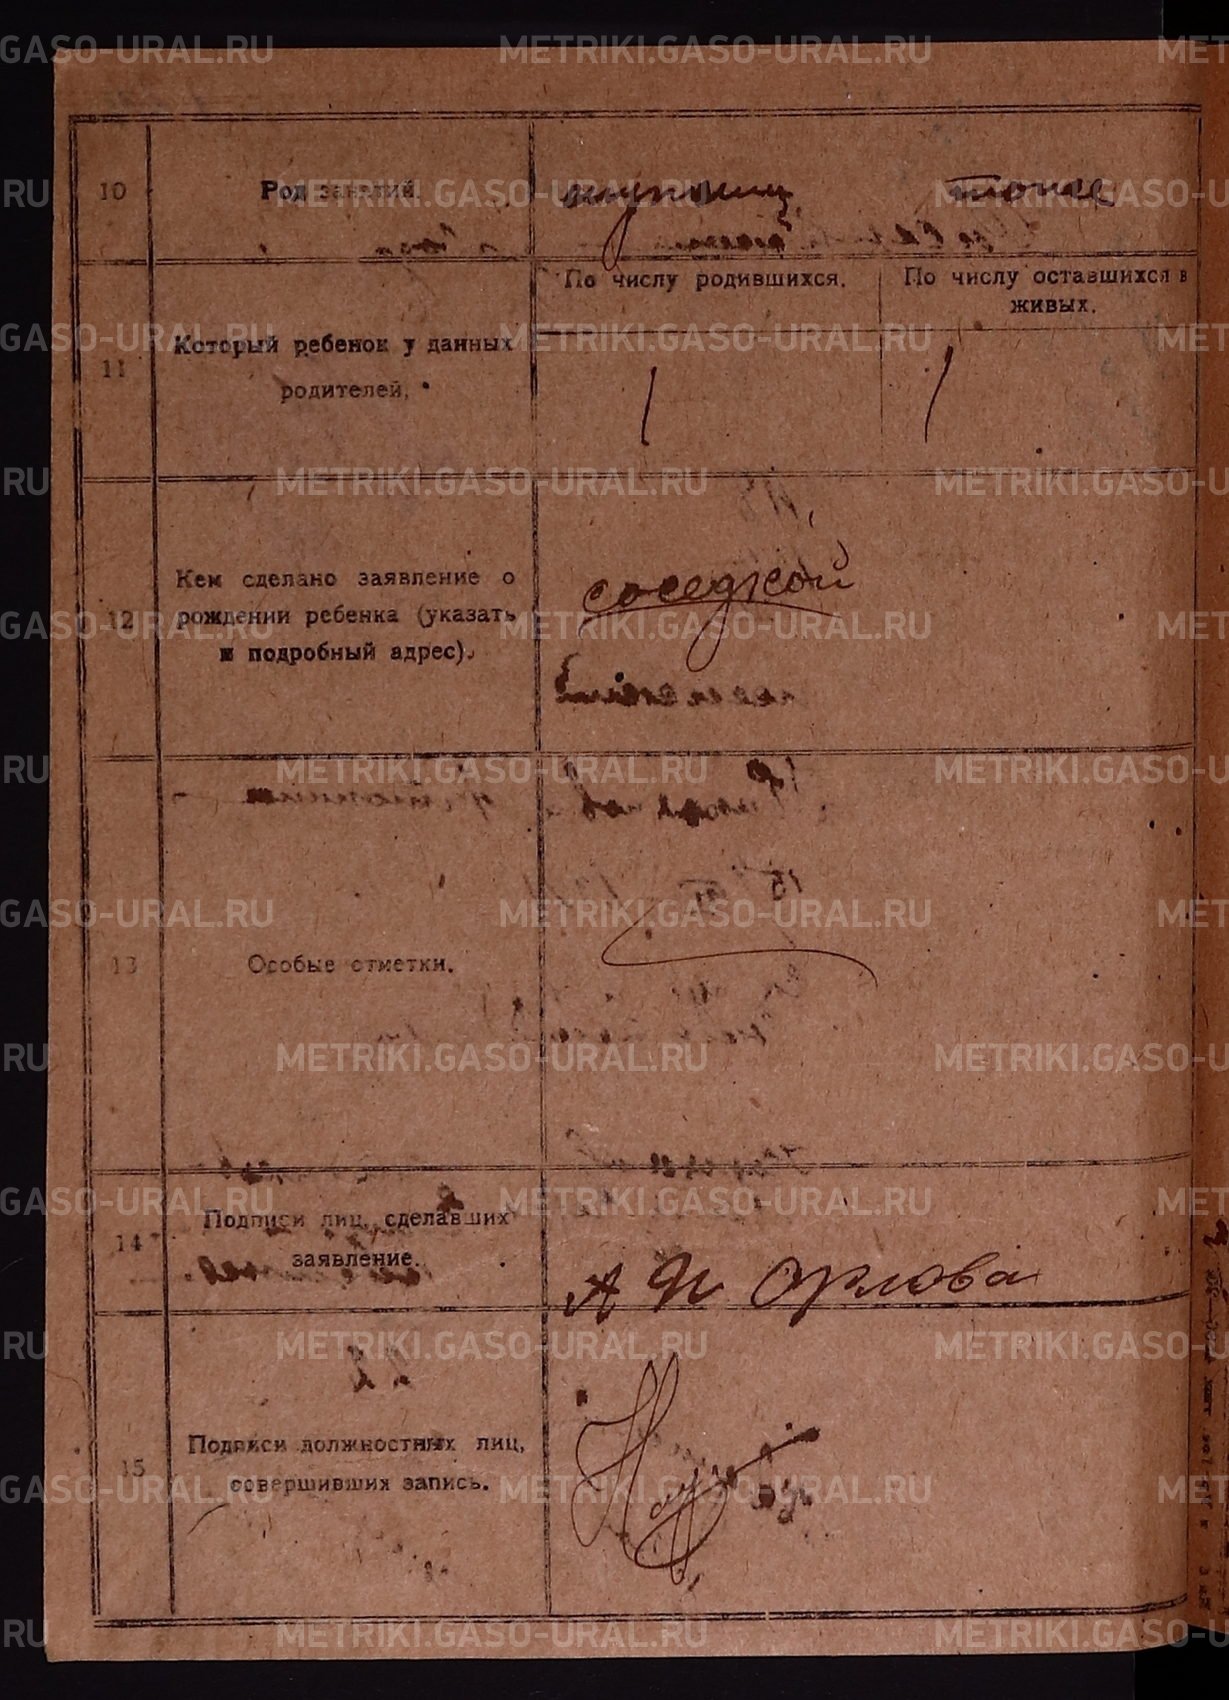 10
Род занятий.
тоже
По числу родившихся.
По числу оставшихся в
живых.
11
Который ребенок у данных
родителей.
1
1
12
Кем сделано заявление о
рождении ребенка (указать
и подробный адрес).
соседкой
13
Особые отметки.
14
Подписи лиц, сделавших
заявление.
А П Орлова
15
Подписи должностных лиц,
совершивших запись.
METRIKI.GASO-URAL.RU